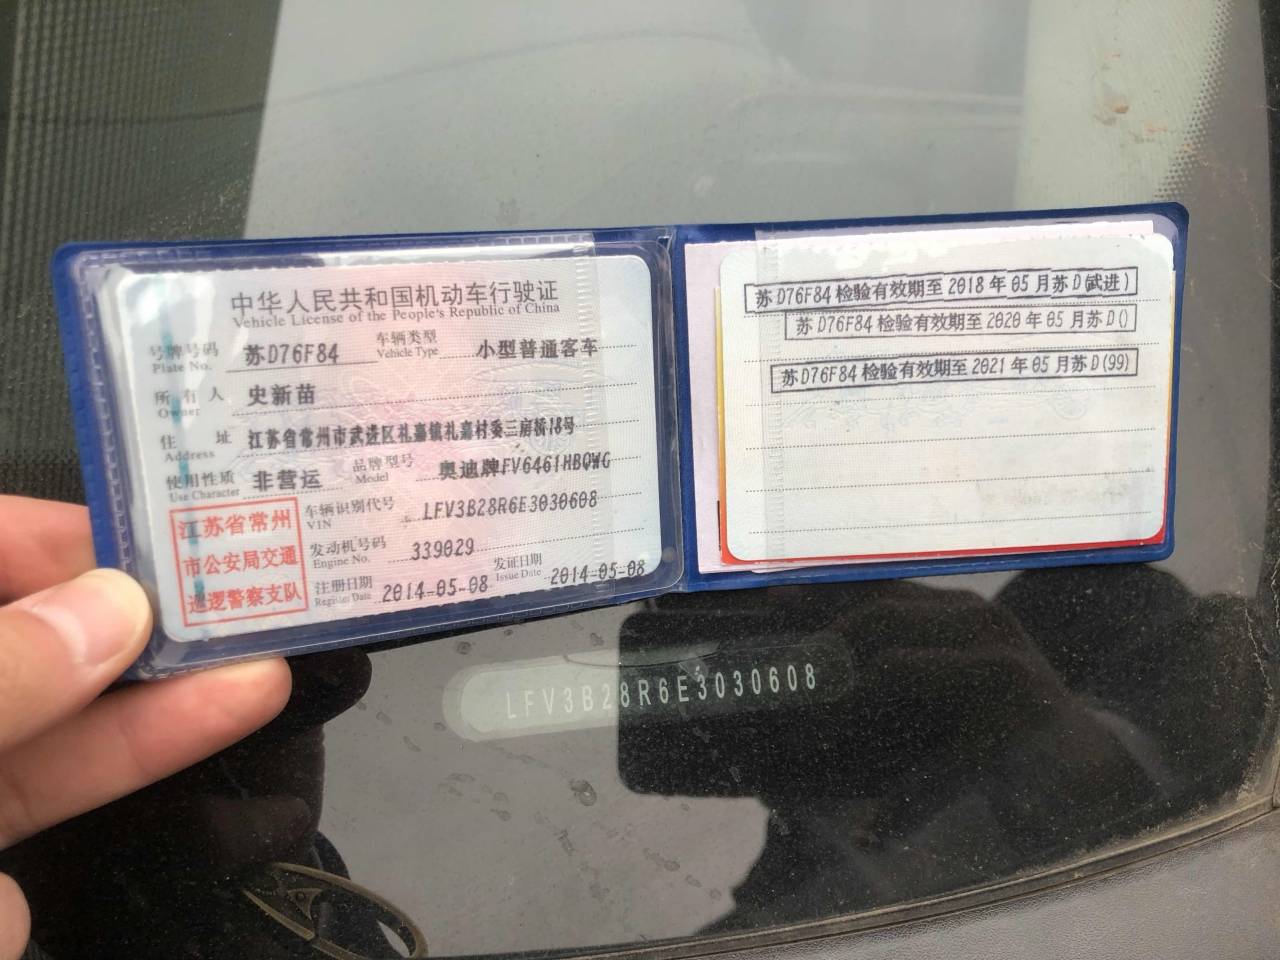 中华人民共和国机动车行驶证
Vehicle License of the People's Republic of China
号牌号码 苏D76F84 车辆类型 小型普通客车
Plate No. Vehicle Type
所有人 史新苗
Owner
住址 江苏省常州市武进区礼嘉镇礼嘉村委三房桥18号
Address
使用性质 非营运 品牌型号 奥迪牌FV6461HBQWG
Use Character Model
江苏省常州
市公安局交通
巡逻警察支队
车辆识别代号 LFV3B28R6E3030608
VIN
发动机号码 339029
Engine No.
注册日期 2014-05-08 发证日期 2014-05-08
Register Date Issue Date
苏D76F84检验有效期至2018年05月苏D(武进)
苏D76F84检验有效期至2020年05月苏D()
苏D76F84检验有效期至2021年05月苏D(99)
LFV3B28R6E3030608